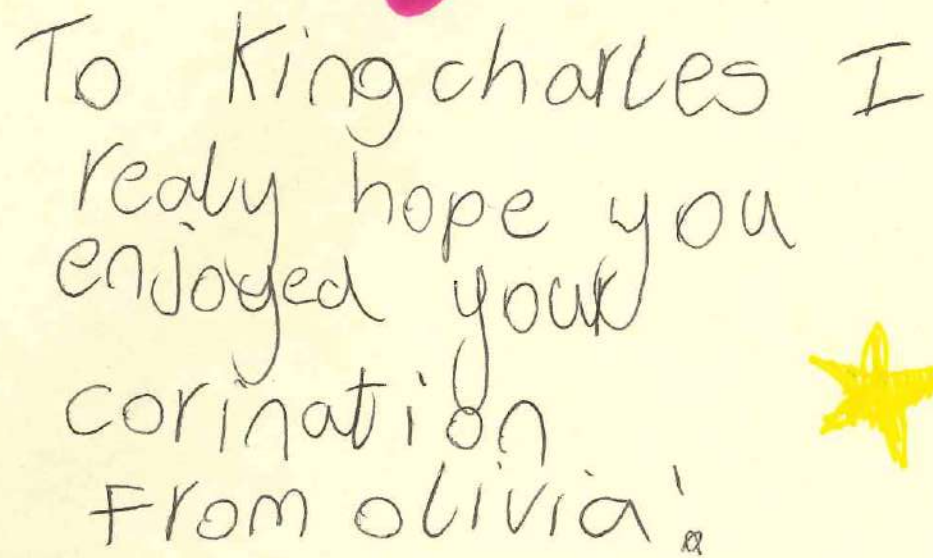 To King charles I
realy hope you
enjoyed your
corination
From olivia!